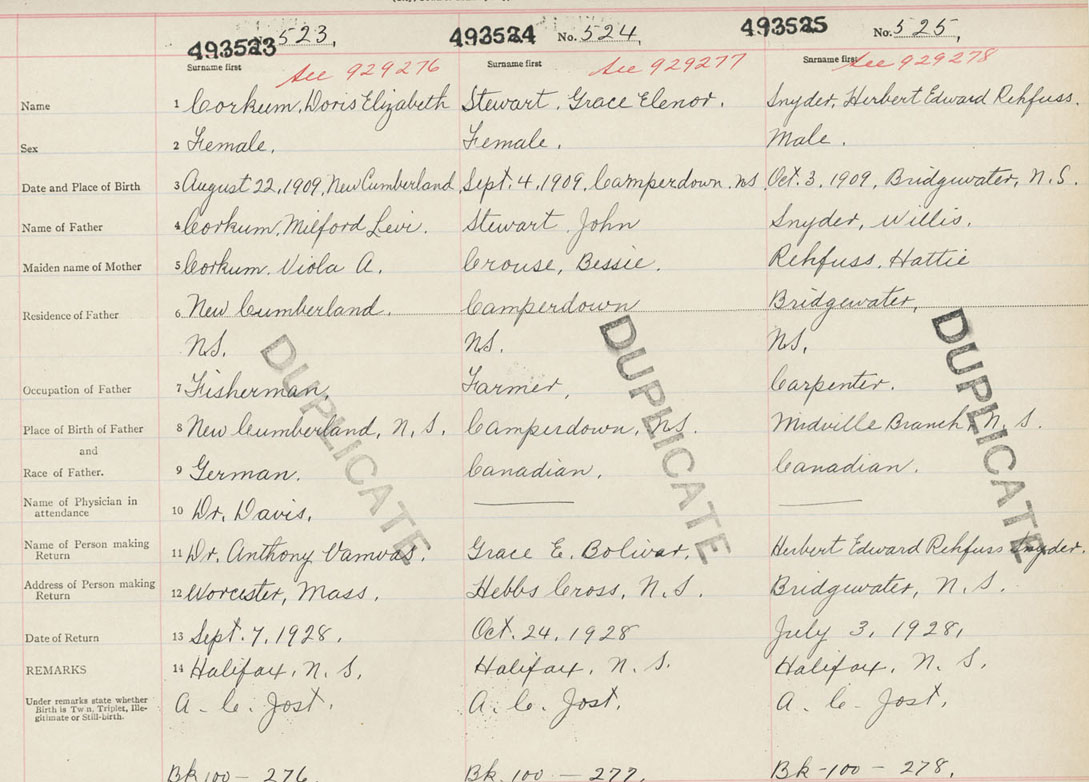 493523 523, 493524 No. 524, 493525 No. 525,
Surname first See 929276 Surname first See 929277 Surname first See 929278
Name 1 Corkum, Doris Elizabeth Stewart, Grace Elenor. Snyder, Herbert Edward Rehfuss.
Sex 2 Female. Female. Male.
Date and Place of Birth 3 August 22, 1909, New Cumberland Sept. 4, 1909, Camperdown. NS Oct. 3, 1909, Bridgwater, N.S.
Name of Father 4 Corkum, Milford Levi. Stewart John Snyder, Willis.
Maiden name of Mother 5 Corkum. Viola A. Crouse, Bessie. Rehfuss, Hattie
Residence of Father 6 New Cumberland. Camperdown Bridgewater,
NS. NS. NS.
Occupation of Father 7 Fisherman. Farmer, Carpenter.
Place of Birth of Father 8 New Cumberland, N.S. Camperdown, NS. Midville Branch, N.S.
and
Race of Father. 9 German. Canadian. Canadian.
Name of Physician in
attendance 10 Dr. Davis.
Name of Person making
Return 11 Dr. Anthony Vamvas. Grace E. Bolivar. Herbert Edward Rehfuss Snyder.
Address of Person making
Return 12 Worcester, Mass. Hebbs Cross, N.S. Bridgwater, N.S.
Date of Return 13 Sept. 7, 1928. Oct. 24, 1928 July 3, 1928,
REMARKS 14 Halifax, N.S. Halifax, N.S. Halifax, N.S.
Under remarks state whether
Birth is Twin, Triplet, Ille-
gitimate or Still-birth. A. C. Jost. A. C. Jost. A. C. Jost.
Bk 100 - 276. Bk. 100 - 277. Bk - 100 - 278.
DUPLICATE DUPLICATE DUPLICATE